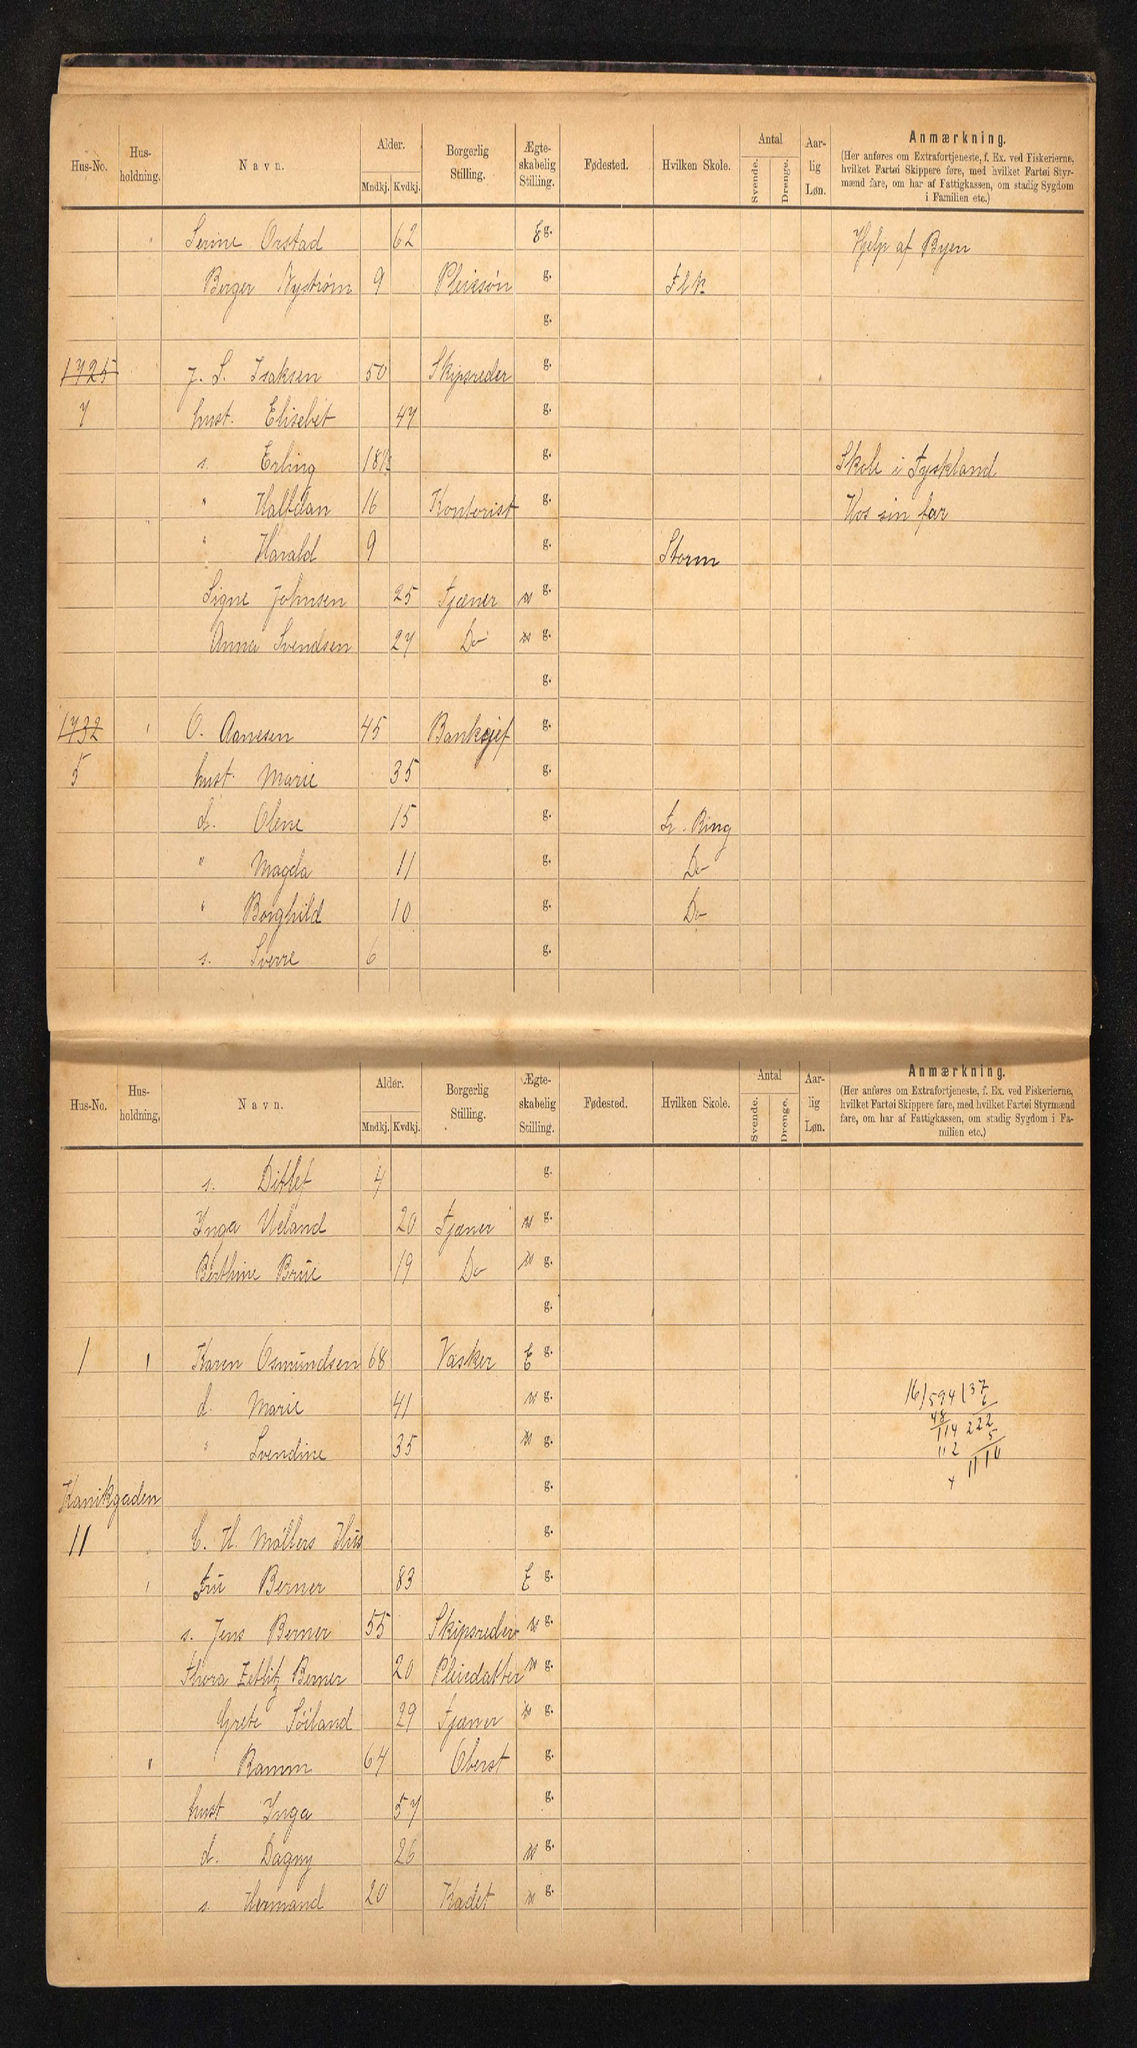 Hus-No. Hus-holdning. Navn. Alder. Mndkj. Kvdkj. Borgerlig Stilling. Ægte-skabelig Stilling. Fødested. Hvilken Skole. Antal Svende. Drenge. Aar-lig Løn. Anmærkning.
(Her anføres om Extrafortjeneste, f. Ex. ved Fiskerierne,
hvilket Fartøi Skippere føre, med hvilket Fartøi Styr-
mænd fare, om har af Fattigkassen, om stadig Sygdom
i Familien etc.)
Serine Orstad 62 E g. Hjelp af Byen
Berger Nystrøm 9 Pleiesøn g. Flk
g.
1725 J. S. Isaksen 50 Skipsreder g.
7 hust. Elisebet 47 g.
s. Erling 18½ g. Skole i Tyskland
" Halfdan 16 Kontorist g. Hos sin far
" Harald 9 g. Storm
Signe Johnsen 25 Tjæner u g.
Anna Svendsen 27 Do u g.
g.
1732 " O. Aanesen 45 Banksjef g.
5 hust. Marie 35 g.
d. Olene 15 g. Fr. Bing
" Magda 11 g. Do
" Borghild 10 g. Do
s. Sverre 6 g.
Hus-No. Hus-holdning. Navn. Alder. Mndkj. Kvdkj. Borgerlig Stilling. Ægte-skabelig Stilling. Fødested. Hvilken Skole. Antal Svende. Drenge. Aar-lig Løn. Anmærkning.
(Her anføres om Extrafortjeneste, f. Ex. ved Fiskerierne,
hvilket Fartøi Skippere føre, med hvilket Fartøi Styrmænd
føre, om har af Fattigkassen, om stadig Sygdom i Fa-
milien etc.)
s. Ditlef 4 g.
Inga Ueland 20 Tjæner u g.
Berthine Brue 19 Do u g.
g.
1 " Karen Osmundsen 68 Vasker E g.
d. Marie 41 u g. 16/594/37
" Svendine 35 u g. 48 114 222 112 1110
Kanikgaden g.
11 C. H. Møllers Hus g.
" Fru Berner 83 E g.
s. Jens Berner 55 Skipsreder u g.
Thora Zetlitz Berner 20 Pleiedatter u g.
Grete Søiland 29 Tjæner u g.
" Ramm 64 Oberst g.
hust Inga 57 g.
d. Dagny 26 u g.
s. Hermand 20 Kadet u g.